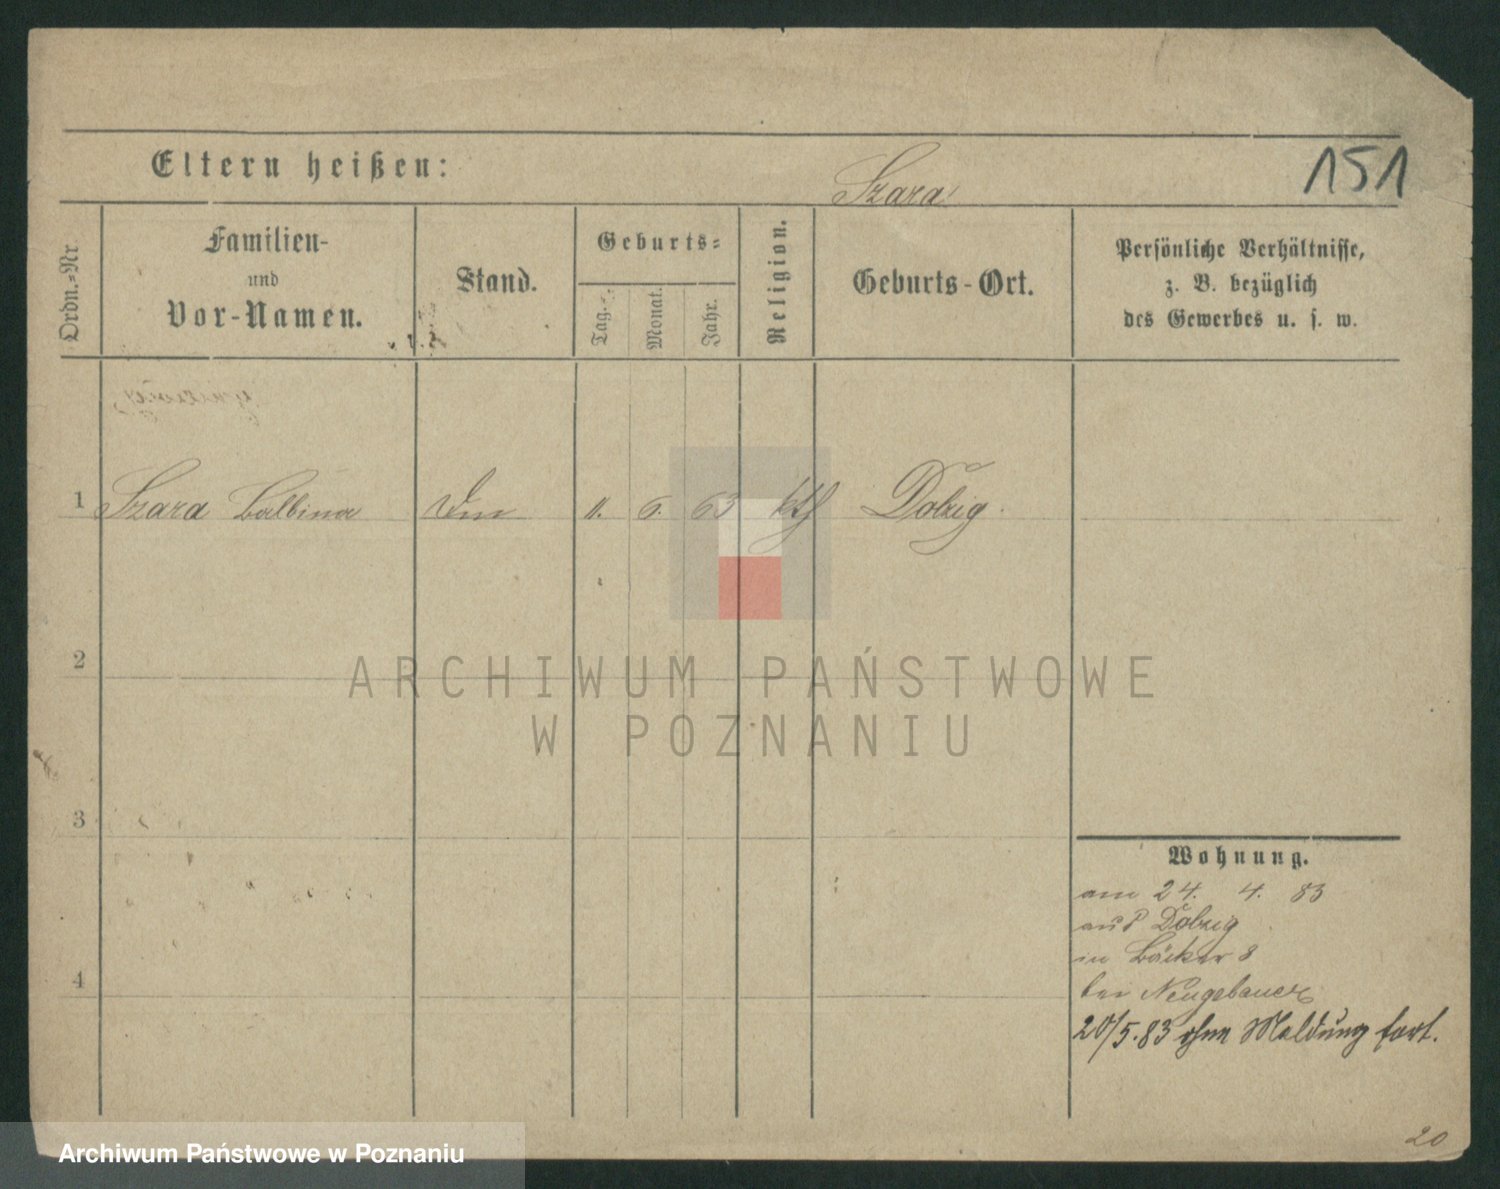 Eltern heißen:
Szara
151
Ordn.-Nr
Familien-
und
Vor-Namen.
Stand.
Geburts-
Tag.
Monat.
Jahr.
Religion.
Geburts-Ort.
Persönliche Verhältnisse,
z. B. bezüglich
des Gewerbes u. s. w.
1 Szara Balbina 11. 6. 63 kth Dolzig
2
ARCHIWUM PAŃSTWOWE
W POZNANIU
3
Wohnung.
am 24. 4. 83
aus Dolzig
in Bäcker 8
bei Neugebauer
4
20/5.83 ohne Meldung fort.
20
Archiwum Państwowe w Poznaniu